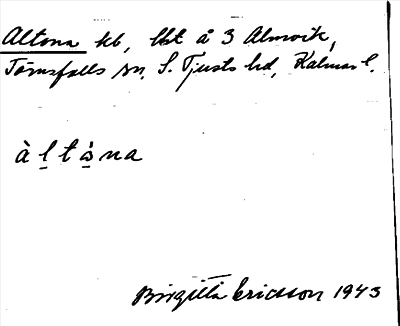 Altona kb, lht å 3 Almvik,
Törnsfalls sn, S. Tjusts hd, Kalmar l.
àltåna
Birgitta Ericsson 1943